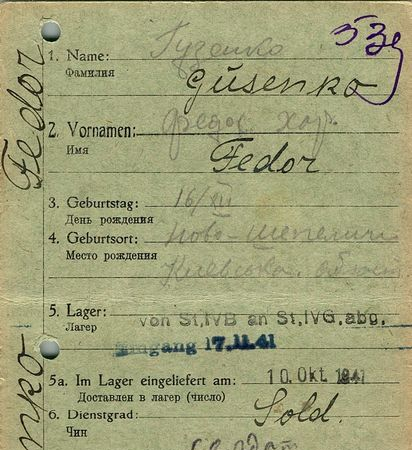 53г
1. Name: Гузенко
Фамилия
Güsenko
2. Vornamen: Федор Хар.
Имя
Fedor
3. Geburtstag: 16/XII
День рождения
4. Geburtsort: Ново-Шепеличи
Место рождения
Киевськой област
5. Lager: von St.IVB an St.IVG.abg.
Лагер
Eingang 17.11.41
5a. Im Lager eingeliefert am: 10. Okt. 1941
Доставлен в лагер (число)
6. Dienstgrad: Sold.
Чин
солдат
Fedor
nko